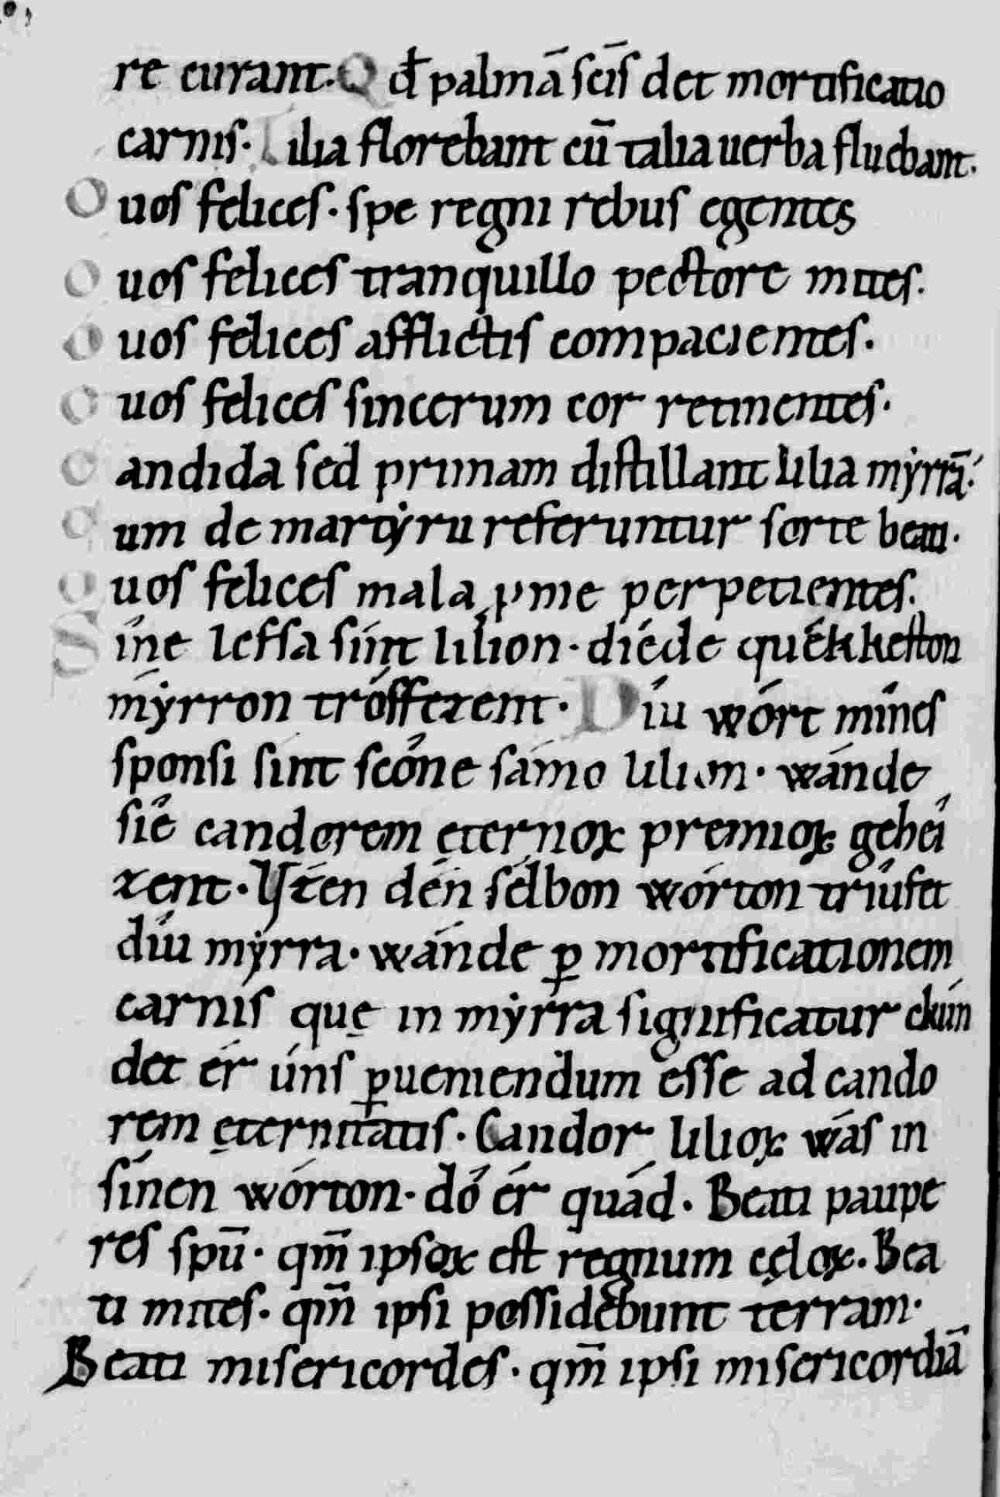 re curant. Qđ palmā sc̄is det mortificatio
carnis. Lilia florebant cū talia uerba fluebant.
O uos felices. spe regni rebus egentes
O uos felices tranquillo pectore mites.
O uos felices afflictis compacientes.
O uos felices sincerum cor retinentes.
Candida sed primam distillant lilia myrrā.
Cum de martyru referuntur sorte beati.
O uos felices mala p me perpetientes.
Sine lefsa sint lilion. diede quékkeston
mýrron tróffezent. Díu wórt mínes
sponsi sint scóne sámo lilion. wánde
sie candorem ęternoꝝ premioꝝ gehéi
zent. Ýzen dén sélbon wórton triúfet
díu myrra. wánde ꝑ mortificationem
carnis que in myrra significatur chún
det ér úns ꝑueniendum esse ad cando
rem ęternitatis. Candor lilioꝝ wás in
sínen wórton. dó ér quád. Beati paupe
res spū. qm̄ ipsoꝝ est regnum cęloꝝ. Bea
ti mites. qm̄ ipsi possidebunt terram.
Beati misericordes. qm̄ ipsi misericordiā